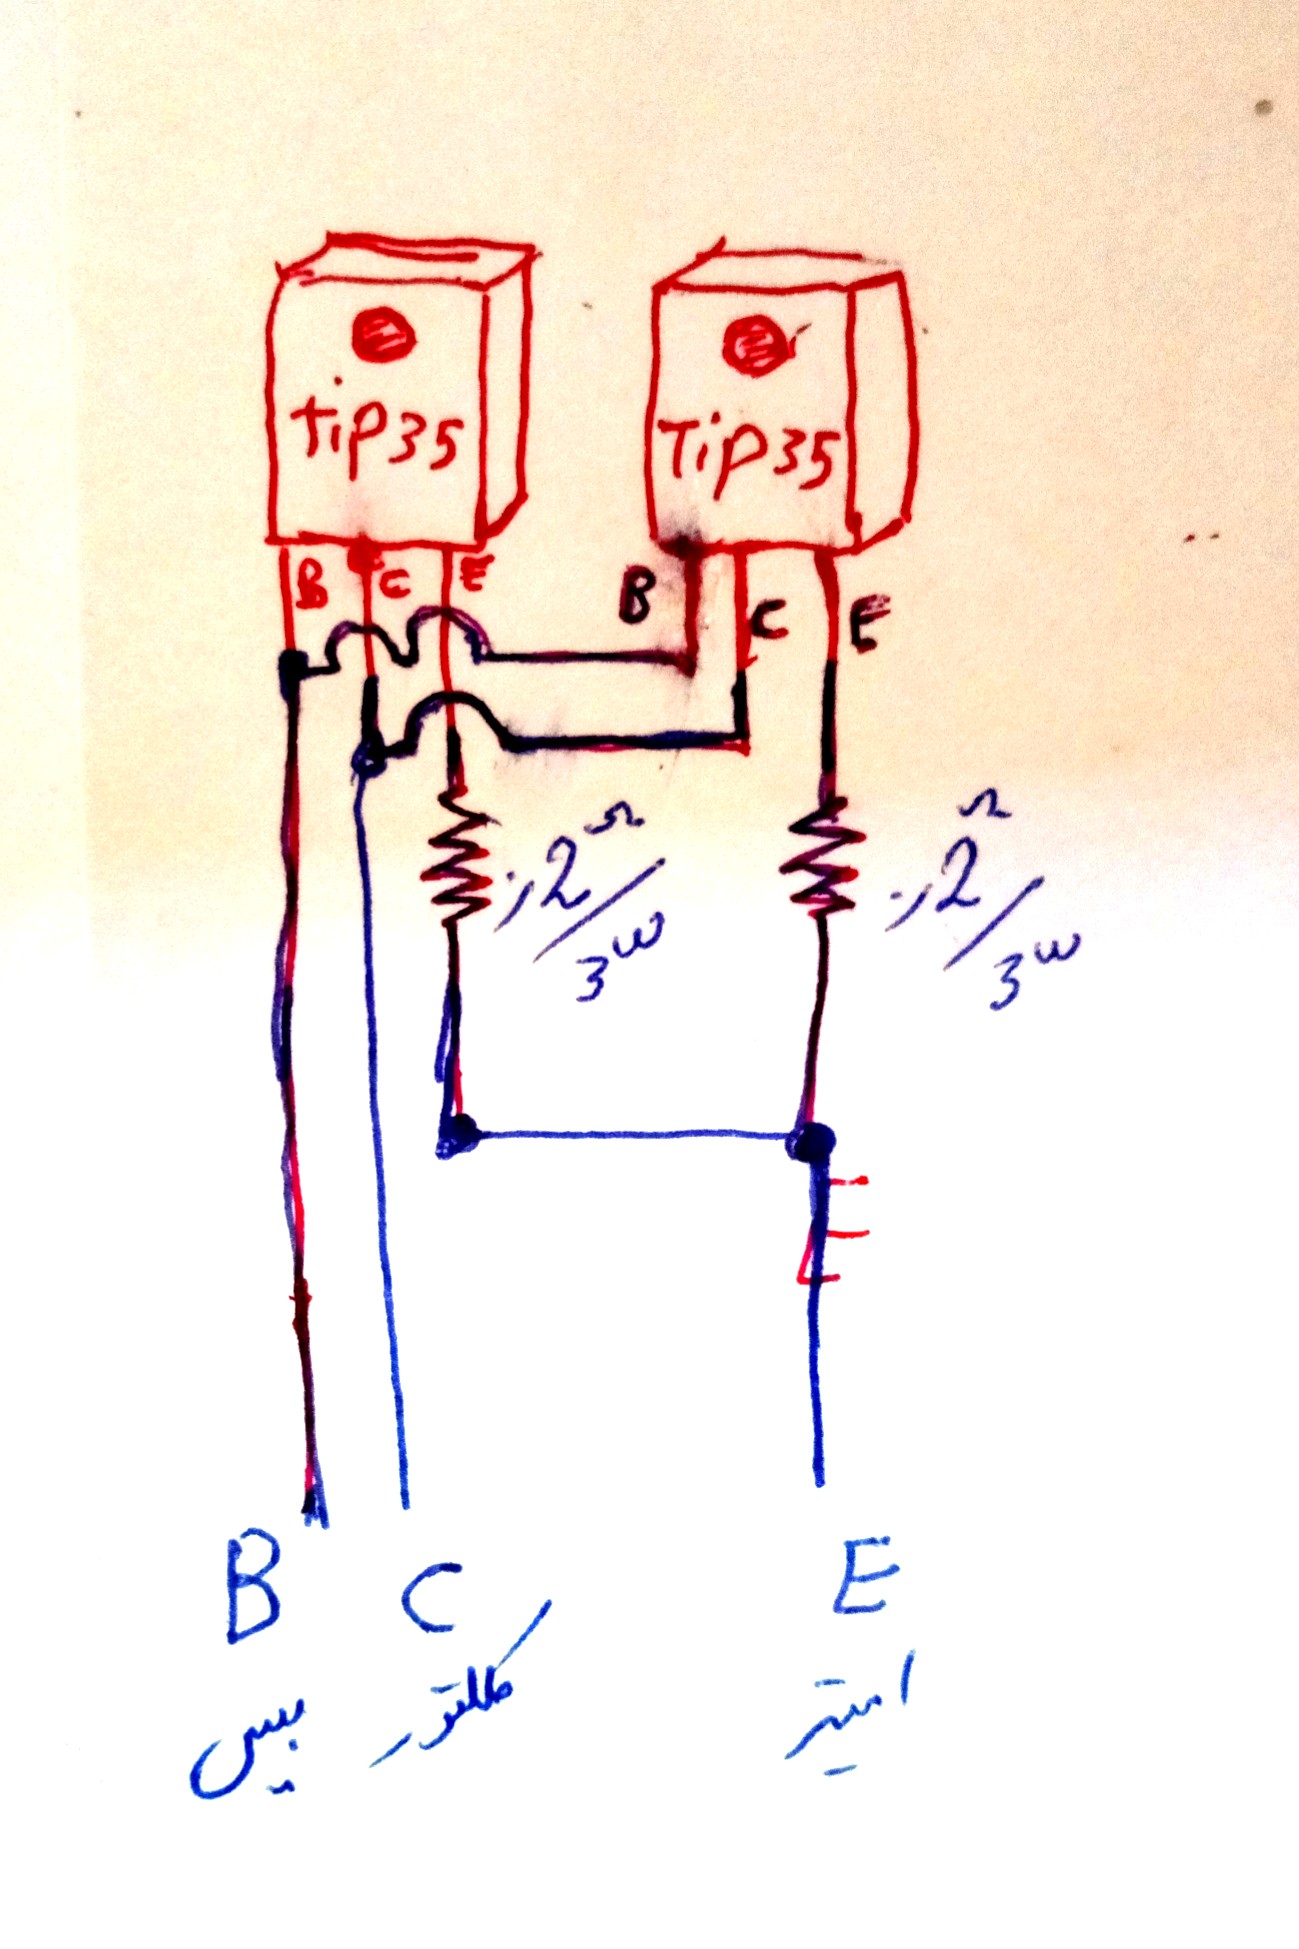 tip35 Tip35
B C E B C E
0,2Ω/3w 0,2Ω/3w
B C E
بیس کلکتور امیتر